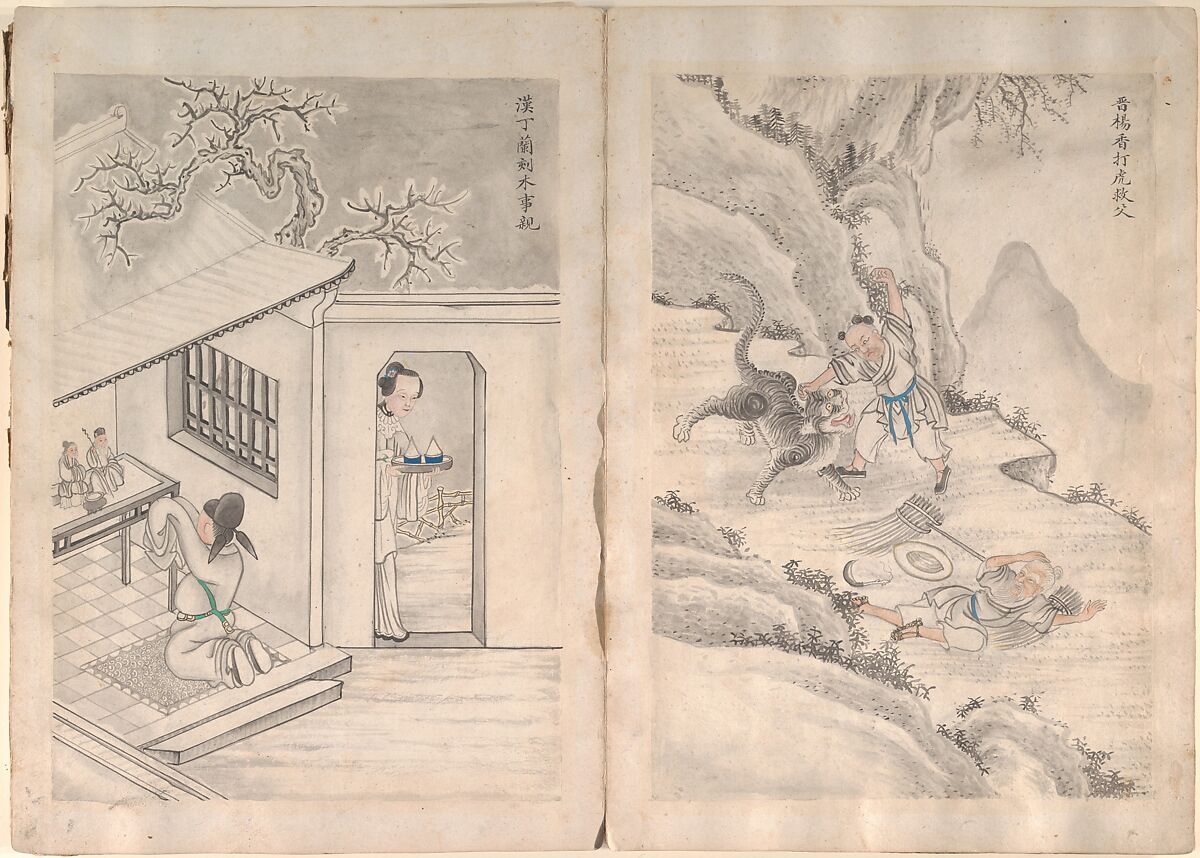 晋楊香打虎救父
漢丁蘭刻木事親